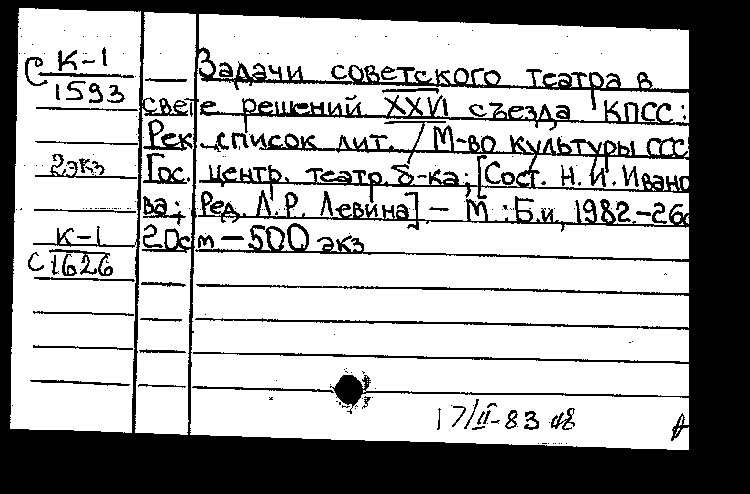 С К-1
1593
Задачи советского театра в
свете решений XXVI съезда КПСС:
Рек. список лит. / М-во культуры ССС
2экз
Гос. центр. театр. б-ка; [Сост. Н. И. Ивано
ва; Ред. Л. Р. Левина] – М : Б.и, 1982.-26с
К-1
С 1626
20см – 500 экз
17/II-83